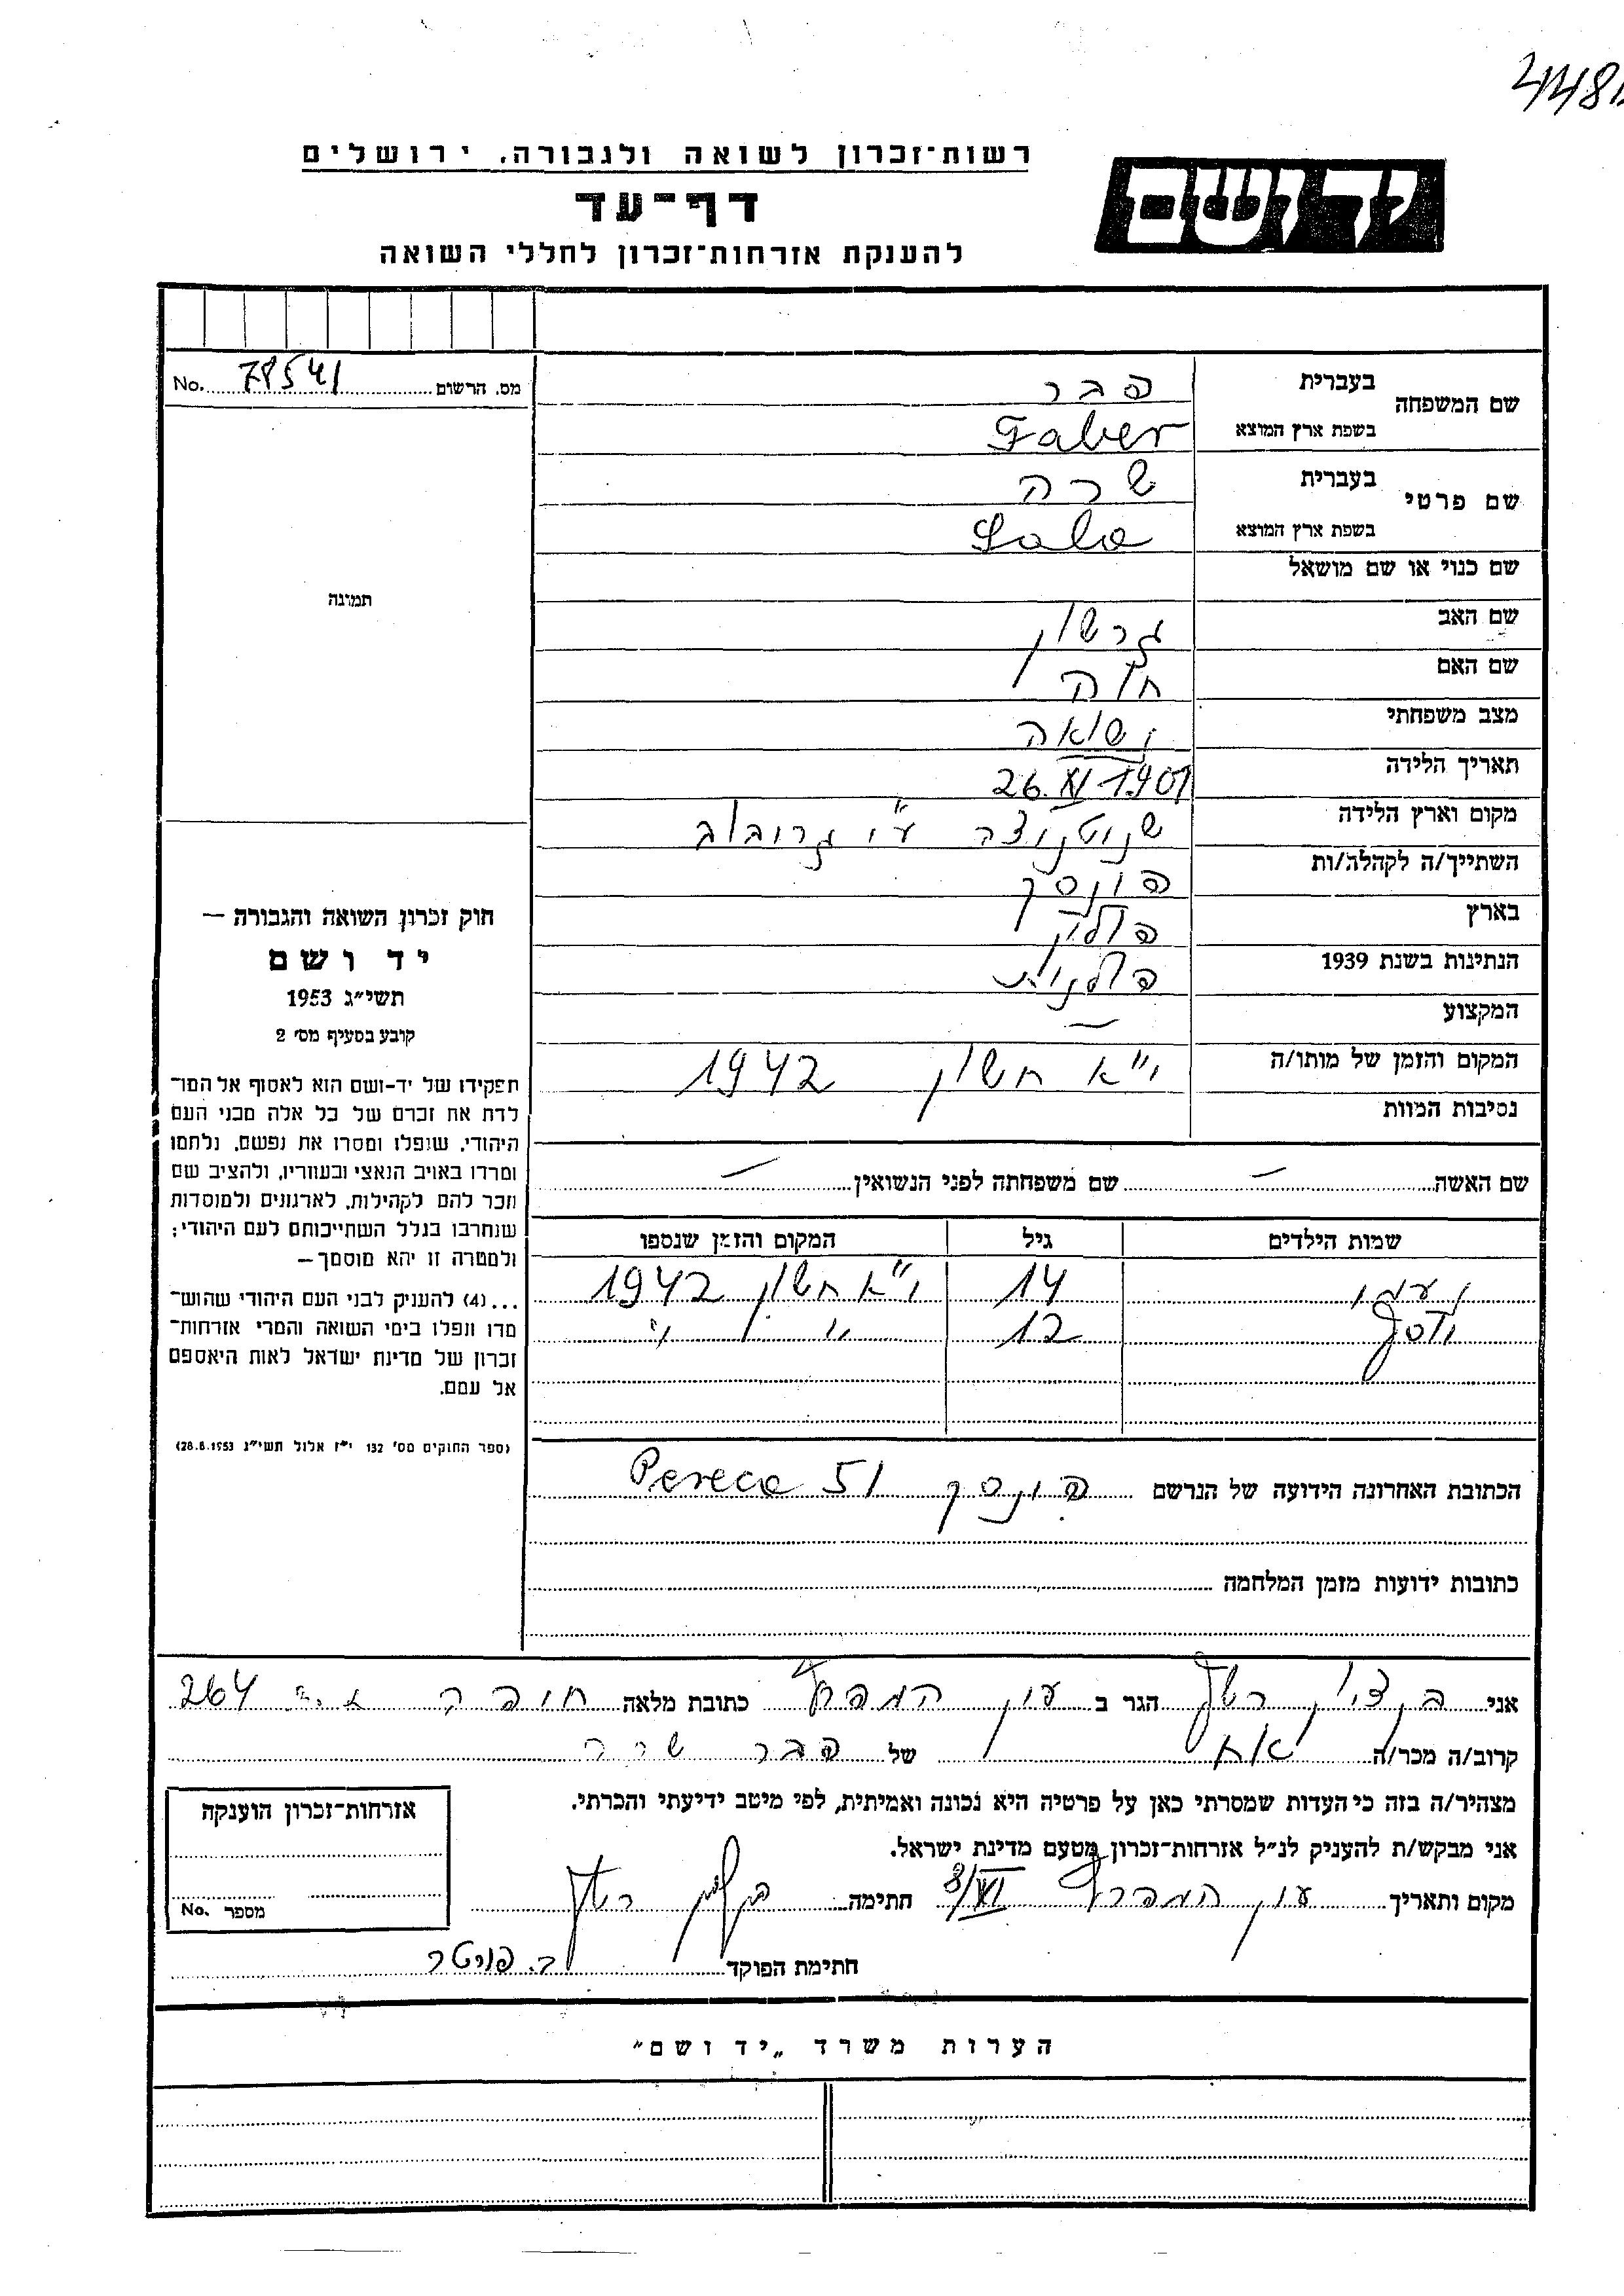 448
רשות-זכרון לשואה ולגבורה, ירושלים
דף-עד
להענקת אזרחות-זכרון לחללי השואה
יד ושם
מס. הרשום 78541 No.
שם המשפחה בעברית פבר
בשפת ארץ המוצא Faber
שם פרטי בעברית שרה
בשפת ארץ המוצא Sala
שם כנוי או שם מושאל
שם האב גרשון
שם האם חוה
מצב משפחתי נשואה
תאריך הלידה 26.XI 1901
מקום וארץ הלידה ע"י
השתייך/ה לקהלה/ות פינסק
בארץ פולין
הנתינות בשנת 1939 פולנית
המקצוע —
המקום והזמן של מותו/ה י"א חשון 1942
נסיבות המוות
שם האשה — שם משפחתה לפני הנשואין —
שמות הילדים גיל המקום והזמן שנספו
נעמי 14 י"א חשון 1942
יוסף 12 " "
הכתובת האחרונה הידועה של הנרשם פינסק 51 Pereca
כתובות ידועות מזמן המלחמה
תמונה
חוק זכרון השואה והגבורה —
יד ושם
תשי"ג 1953
קובע בסעיף מס' 2
תפקידו של יד-ושם הוא לאסוף אל המו-
לדת את זכרם של כל אלה מבני העם
היהודי, שנפלו ומסרו את נפשם, נלחמו
ומרדו באויב הנאצי ובעוזריו, ולהציב שם
וזכר להם לקהילות, לארגונים ולמוסדות
שנחרבו בגלל השתייכותם לעם היהודי;
ולמטרה זו יהא מוסמך—
...(4) להעניק לבני העם היהודי שהוש-
מדו ונפלו בימי השואה והמרי אזרחות-
זכרון של מדינת ישראל לאות היאספם
אל עמם.
(ספר החוקים מס' 132 י"ז אלול תשי"ג 28.8.1953)
אני בן ציון רשף הגר ב עין המפרץ כתובת מלאה חיפה 264
קרוב/ה מכר/ה אח של פבר שרה
מצהיר/ה בזה כי העדות שמסרתי כאן על פרטיה היא נכונה ואמיתית, לפי מיטב ידיעתי והכרתי.
אני מבקש/ת להעניק לנ"ל אזרחות-זכרון מטעם מדינת ישראל.
מקום ותאריך עין המפרץ 8/XI חתימה בן ציון רשף
חתימת הפוקד
אזרחות-זכרון הוענקה
מספר No.
הערות משרד "יד ושם"